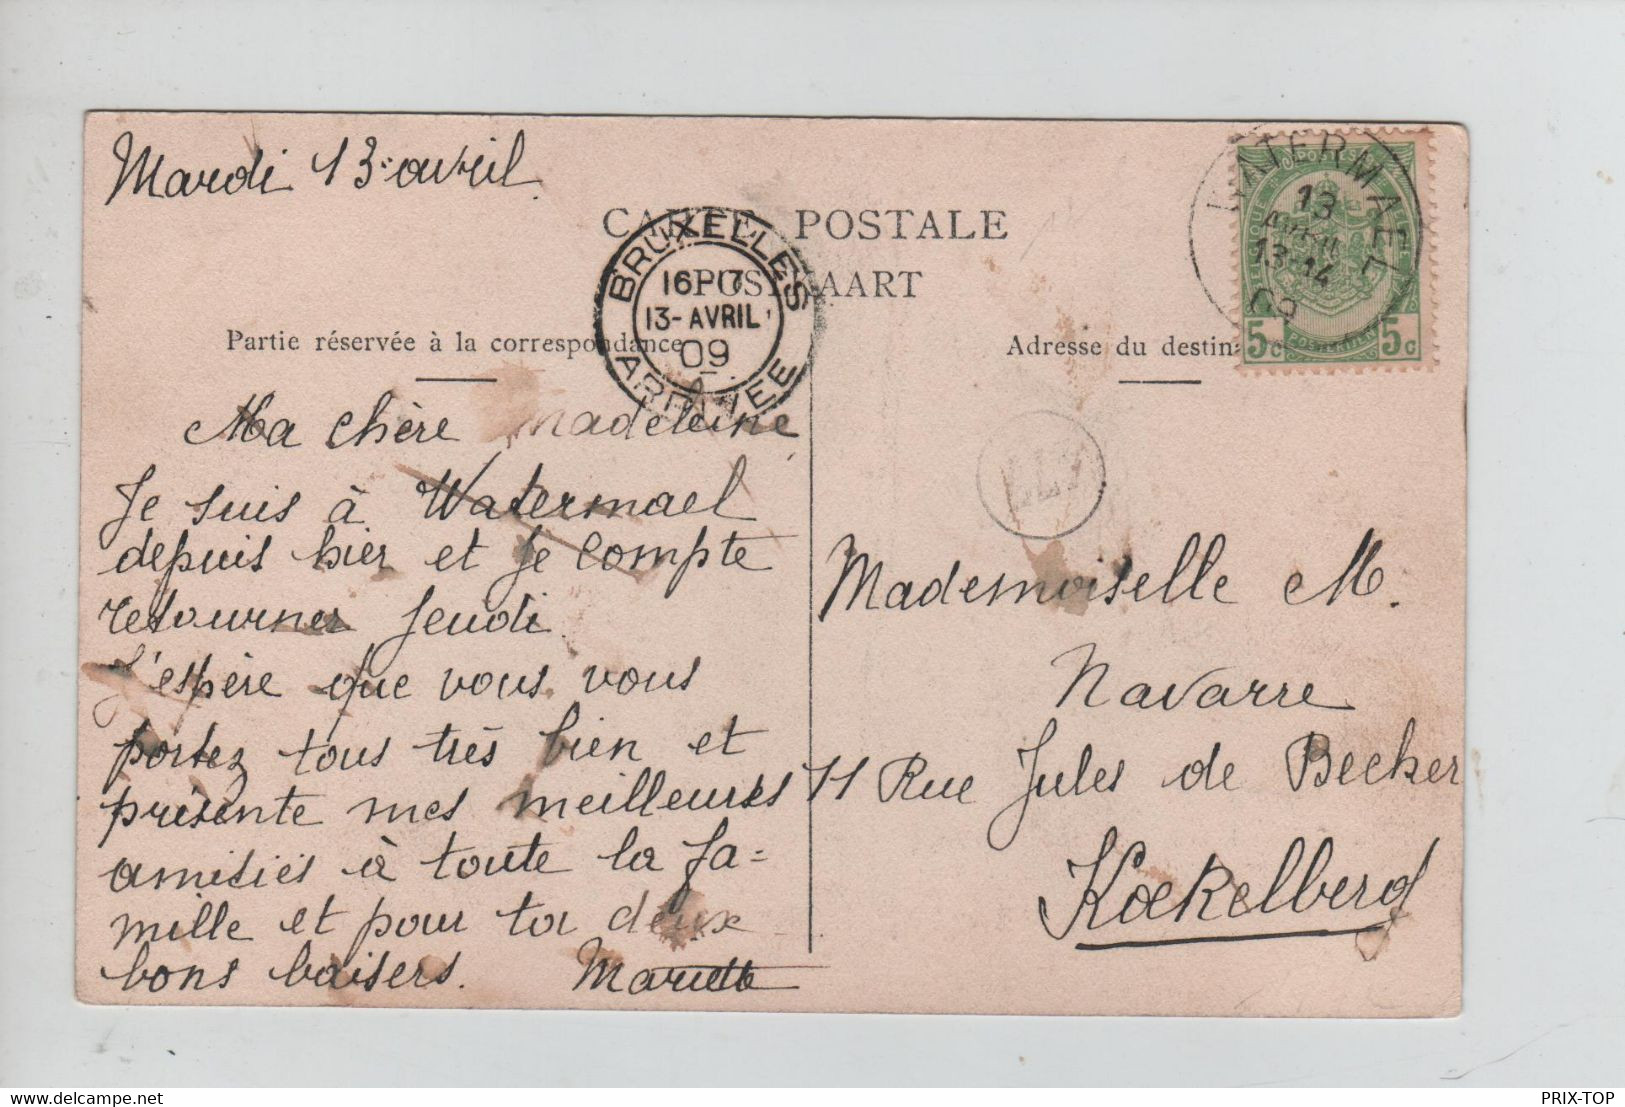 Mardi 13 avril
CARTE POSTALE
POSTKAART
BRUXELLES
16-17
13-AVRIL
09
ARRIVEE
WATERMAEL
13
AVRIL
13-14
09
5c 5c
Partie réservée à la correspondance
Adresse du destin
Ma chère Madeleine,
Je suis à Watermael
depuis hier et je compte
retourner jeudi.
J'espère que vous vous
portez tous très bien et
présente mes meilleures
amitiés à toute la fa=
mille et pour toi deux
bons baisers. Mariette
Mademoiselle M.
Navarre
11 Rue Jules de Becker
Koekelberg
PRIX-TOP